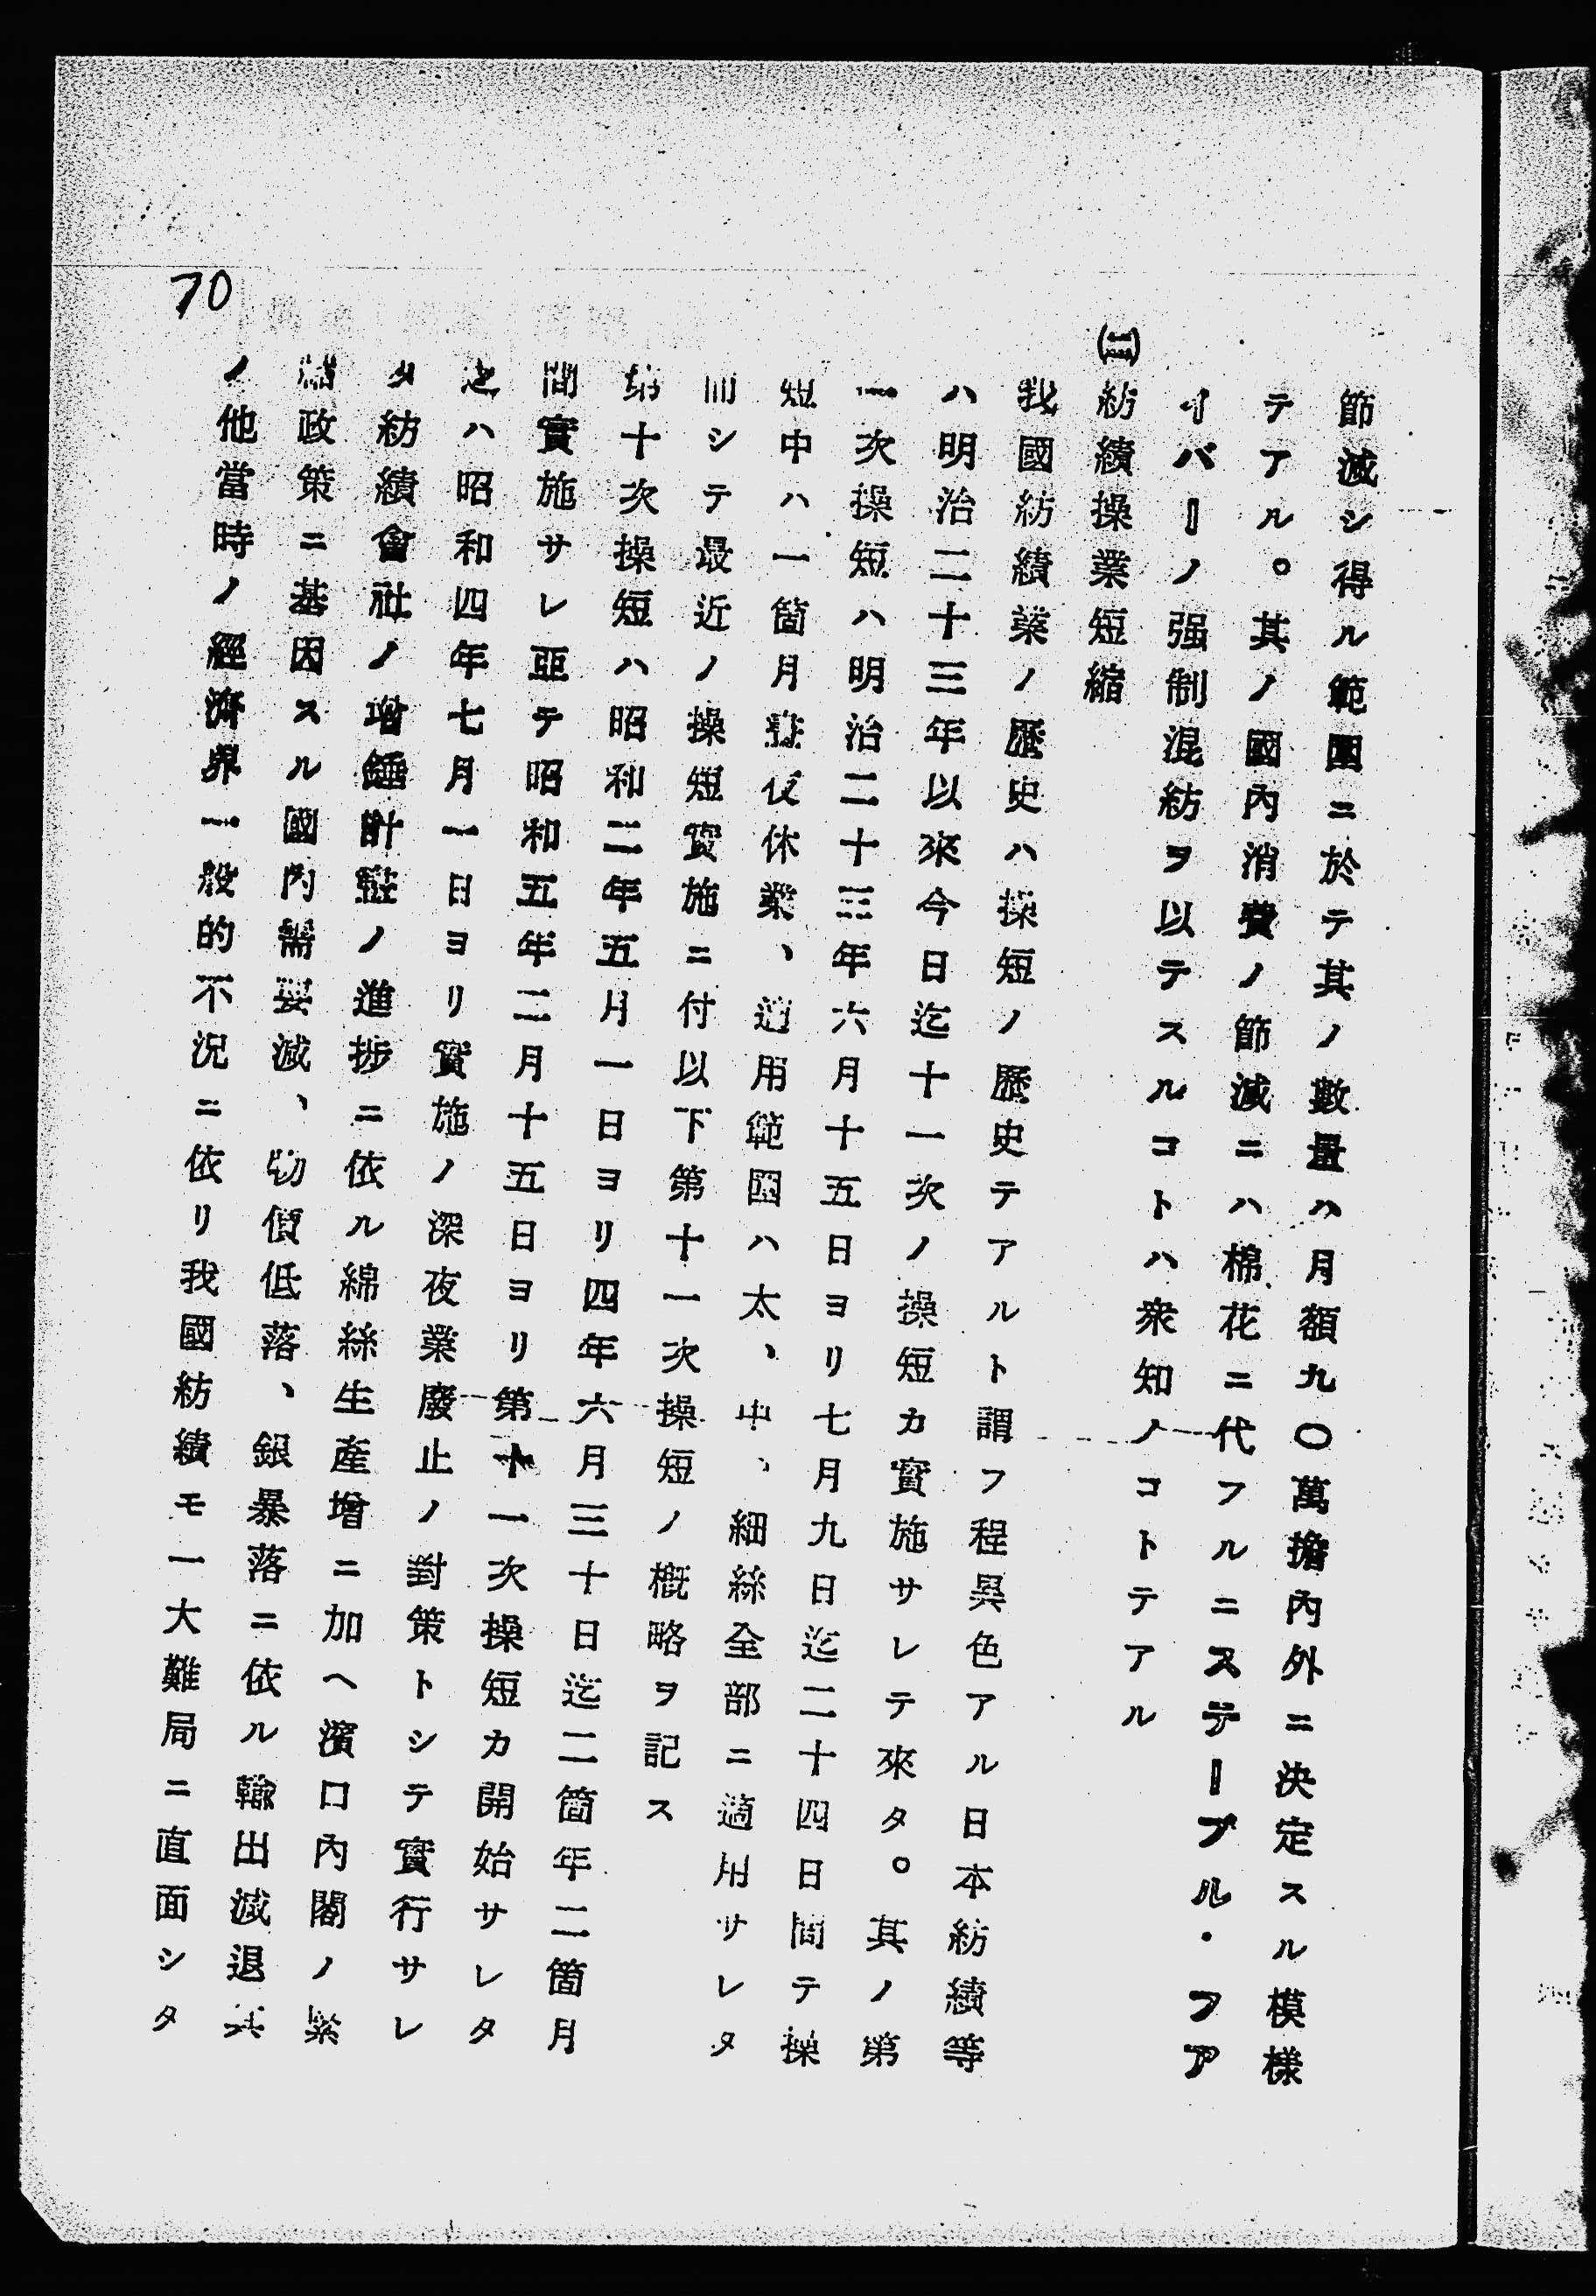 節減シ得ル範圍ニ於テ其ノ數量ハ月額九〇萬擔內外ニ決定スル模樣
テアル。其ノ國內消費ノ節減ニハ棉花ニ代フルニステープル・フア
イバーノ强制混紡ヲ以テスルコトハ衆知ノコトテアル
紡績操業短縮
我國紡績業ノ歷史ハ操短ノ歷史テアルト謂フ程異色アル日本紡績等
ハ明治二十三年以來今日迄十一次ノ操短カ實施サレテ來タ。其ノ第
一次操短ハ明治二十三年六月十五日ヨリ七月九日迄二十四日間テ操
短中ハ一箇月晝夜休業、適用範圍ハ太、中、細絲全部ニ適用サレタ
而シテ最近ノ操短實施ニ付以下第十一次操短ノ槪略ヲ記ス
第十次操短ハ昭和二年五月一日ヨリ四年六月三十日迄二箇年二箇月
間實施サレ亞テ昭和五年二月十五日ヨリ第十一次操短カ開始サレタ
之ハ昭和四年七月一日ヨリ實施ノ深夜業廢止ノ對策トシテ實行サレ
タ紡績會社ノ增錘計畫ノ進捗ニ依ル綿絲生產增ニ加ヘ濱口內閣ノ緊
縮政策ニ基因スル國內需要減、物價低落、銀暴落ニ依ル輸出減退其
ノ他當時ノ經濟界一般的不況ニ依リ我國紡績モ一大難局ニ直面シタ
70